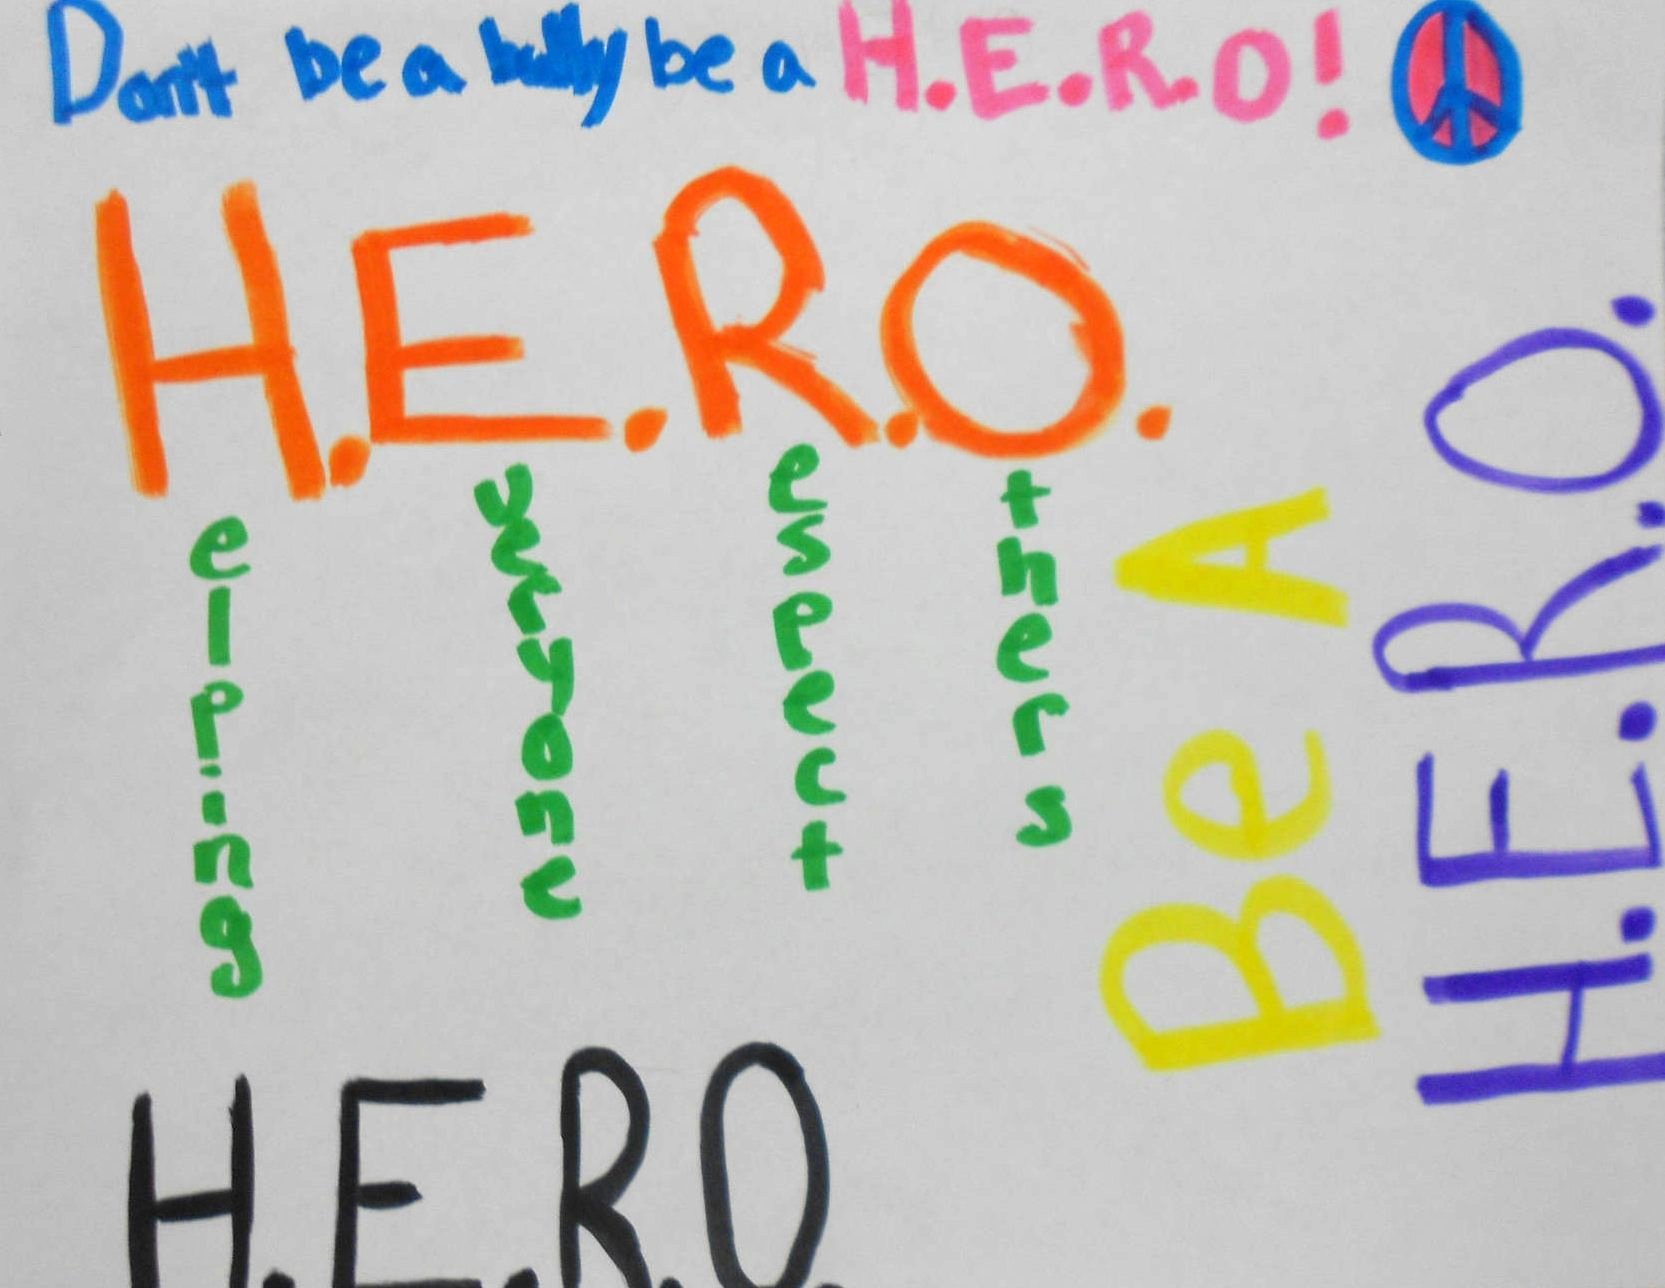 Don't be a bully be a H.E.R.O!
H.E.R.O.
elping
veryone
espect
thers
Be A
H.E.R.O.
H.E.R.O.